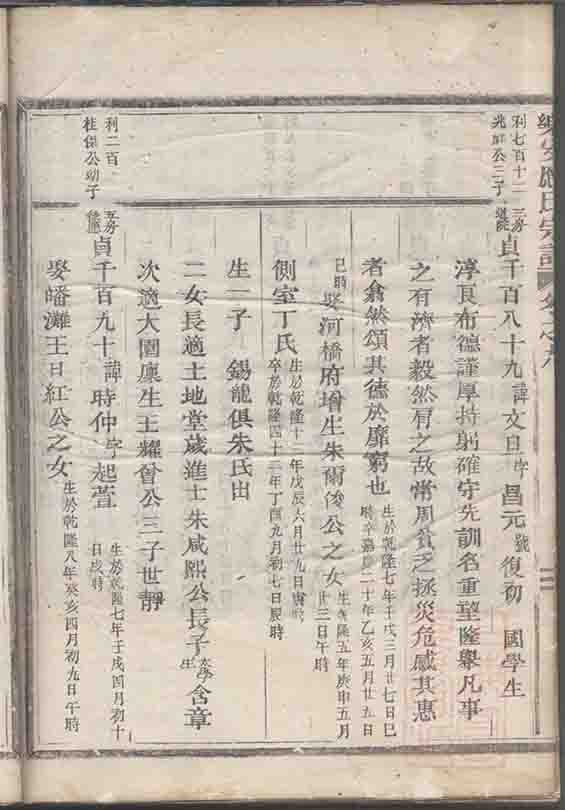 樂安應氏宗譜
利七百十一
兆麟公三子
三房
貞千百八十九諱文日字昌元號復初 國學生
淳良布德謹厚持躬確守先訓名重望隆舉凡事
之有濟者毅然有之故常周貧乏拯災危感其惠
者翕然頌其德於靡窮也生於乾隆七年壬戌三月廿七日巳
時卒嘉慶二十年乙亥五月廿五日
巳時娶河橋府增生朱爾俊公之女生乾隆五年庚申五月
廿三日午時
側室丁氏生於乾隆十二年戊辰六月廿九日寅時
卒於乾隆四十二年丁酉九月初七日辰時
生一子 錫龍俱朱氏出
二女長適土地堂歲進士朱咸熙公長子太學生含章
次適大園廩生王耀曾公三子世靜
利二百
桂保公幼子
五房
貞千百九十諱時仲字起萱生於乾隆七年壬戌四月初十
日戌時
娶皤灘王日紅公之女生於乾隆八年癸亥四月初九日午時